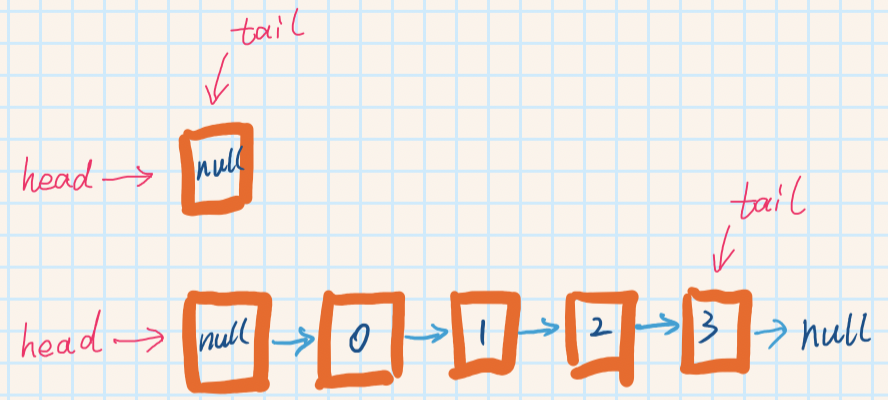 tail
head → null
tail
head → null → 0 → 1 → 2 → 3 → null